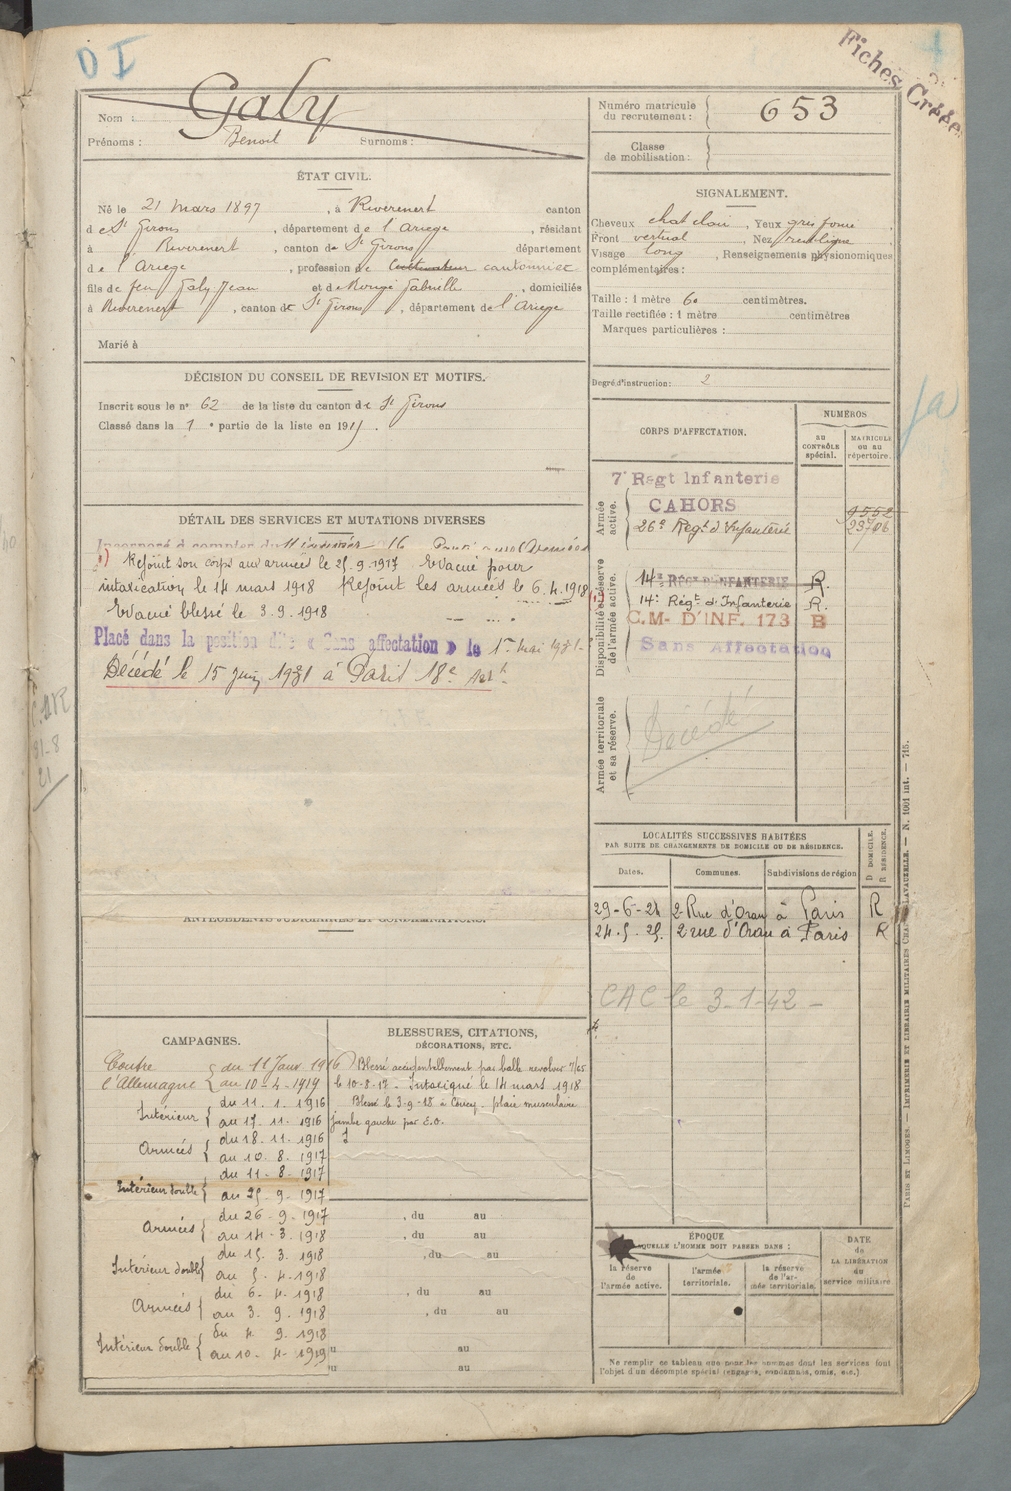 D I
Fiches Créées
Nom : Galy
Prénoms : Benoit Surnoms :
Numéro matricule du recrutement : 653
Classe de mobilisation :
ÉTAT CIVIL.
Né le 21 mars 1897, à Riverenert canton
de St Girons, département de l'Ariège, résidant
à Riverenert, canton de St Girons département
de l'Ariège, profession de cultivateur cantonnier
fils de feu Galy Jean et de Rougé Gabrielle, domiciliés
à Riverenert, canton de St Girons, département de l'Ariège
Marié à
SIGNALEMENT.
Cheveux chat clair, Yeux gris foncé
Front vertical, Nez rectiligne
Visage long, Renseignements physionomiques
complémentaires :
Taille : 1 mètre 60 centimètres.
Taille rectifiée : 1 mètre centimètres
Marques particulières :
Degré d'instruction : 2
DÉCISION DU CONSEIL DE REVISION ET MOTIFS.
Inscrit sous le n° 62 de la liste du canton de St Girons
Classé dans la 1e partie de la liste en 191
CORPS D'AFFECTATION.
NUMÉROS
AU CONTRÔLE spécial.
MATRICULE OU AU répertoire.
Armée active.
7e Regt Infanterie
CAHORS
9552
26e Regt d'Infanterie 23706
Disponibilité et réserve de l'armée active.
14e RÉGt D'INFANTERIE R.
14e Régt d'Infanterie R.
C.M. D'INF. 173 B
Sans Affectation
Armée territoriale et sa réserve.
Décédé
DÉTAIL DES SERVICES ET MUTATIONS DIVERSES
Incorporé à compter du 11 janvier 16
1) Rejoint son corps aux armées le 25.9.1917 Evacué pour
intoxication le 14 mars 1918 Rejoint les armées le 6.4.1918
Evacué blessé le 3.9.1918
Placé dans la position dite « Sans affectation » le 1er mai 1931
Décédé le 15 juin 1931 à Paris 18e Arrt
LOCALITÉS SUCCESSIVES HABITÉES
PAR SUITE DE CHANGEMENTS DE DOMICILE OU DE RÉSIDENCE.
Dates. Communes. Subdivisions de région
D DOMICILE. R RÉSIDENCE.
29-6-21 2 Rue d'Oran à Paris R
24.5.25. 2 rue d'Oran à Paris R
CAC le 3-1-42 -
ANTÉCÉDENTS JUDICIAIRES ET CONDAMNATIONS.
CAMPAGNES.
Contre l'Allemagne { du 11 Janv 1916
au 10-4-1919
Intérieur { du 11. 1. 1916
au 17. 11. 1916
Armées { du 18. 11. 1916
au 10. 8. 1917
Intérieur double { du 11 - 8 - 1917
au 25. 9. 1917
Armées { du 26 - 9 - 1917
au 14 - 3. 1918
Intérieur double { du 15. 3. 1918
au 5. 4. 1918
Armées { du 6. 4. 1918
au 3. 9. 1918
Intérieur double { du 4 9. 1918
au 10 - 4 - 1919
BLESSURES, CITATIONS,
DÉCORATIONS, ETC.
Blessé accidentellement par balle revolver 7/65
le 10-8-17. Intoxiqué le 14 mars 1918
Blessé le 3-9-18 à Coucy. plaie musculaire
jambe gauche par E.O.
, du au
, du au
, du au
, du au
, du au
au
au
ÉPOQUE
À LAQUELLE L'HOMME DOIT PASSER DANS :
la réserve de l'armée active.
l'armée territoriale.
la réserve de l'armée territoriale.
DATE de LA LIBÉRATION du service militaire.
Ne remplir ce tableau que pour les hommes dont les services font
l'objet d'un décompte spécial (engagés, condamnés, omis, etc.)
PARIS ET LIMOGES. — IMPRIMERIE ET LIBRAIRIE MILITAIRES CHARLES-LAVAUZELLE. — N. 1001 int. — 715.